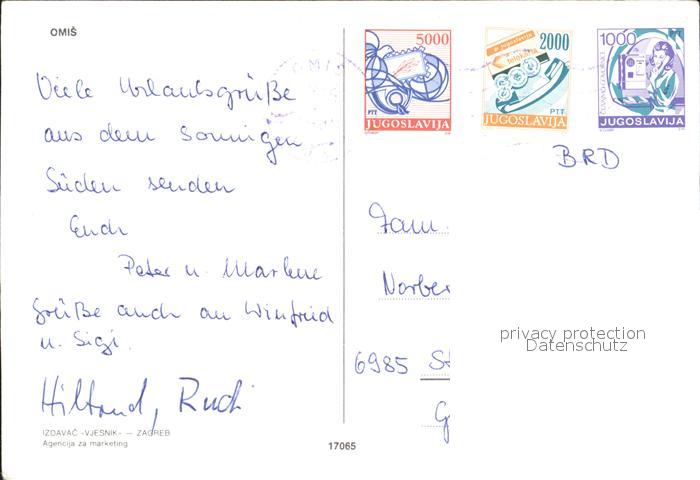 OMIŠ
Viele Urlaubsgrüße
aus dem sonnigen
Süden senden
Euch
Peter u. Marlene
Grüße auch an Winfried
u. Sigi.
Hiltrud, Rudi
IZDAVAČ «VJESNIK» — ZAGREB
Agencija za marketing
17065
5000
PTT
JUGOSLAVIJA
2000
telekartica
PTT
JUGOSLAVIJA
1000
PTT
JUGOSLAVIJA
BRD
Fam.
Norber
6985 St
G
privacy protection
Datenschutz